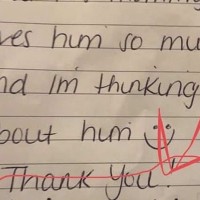 ves him so mu
nd Im thinking
bout him
Thank You.